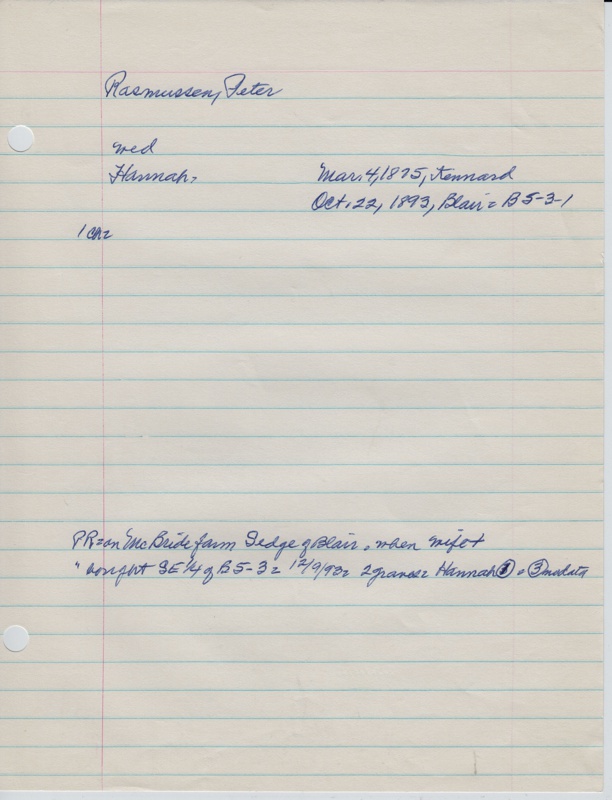 Rasmussen, Peter
wed
Hannah =
Mar. 4, 1875, Kennard
Oct. 22, 1893, Blair = B 5-3-1
1 ch =
PR = on McBride farm S edge of Blair, when wife +
" bought SE 1/4 of B 5-3 = 12/9/93 = 2 graves = Hannah ① = ③ no data